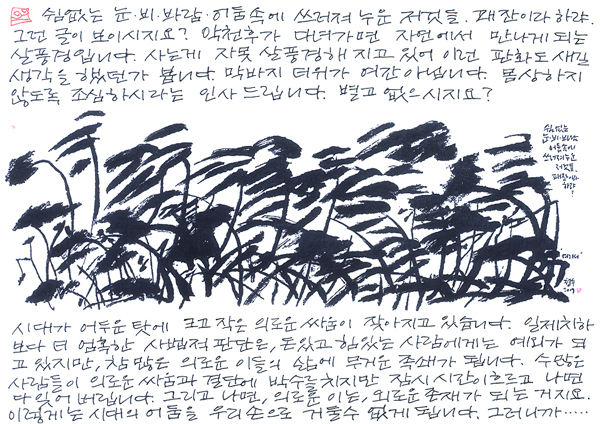 쉼없는 눈·비·바람·어둠속에 쓰러져 누운 저것들. 패잔이라 하랴.
그런 글이 보이시지요? 악천후가 다녀가면 자연에서 만나게 되는
살풍경입니다. 사는게 자못 살풍경해지고 있어 이런 판화도 새길
생각을 했던가 봅니다. 막바지 더위가 여간아닙니다. 몸상하지
않도록 조심하시라는 인사드립니다. 별고 없으시지요?
쉼없는
눈·비·바람
어둠속에
쓰러져누운
저것들
패잔이라
하랴
?
시대가 어두운 탓에 크고 작은 의로운 싸움이 잦아지고 있습니다. 일제치하
보다 더 엄혹한 사법적 판단은, 돈있고 힘있는 사람에게는 예외가 되
고 있지만, 참 많은 의로운 이들의 삶에 무거운 족쇄가 됩니다. 수많은
사람들이 의로운 싸움과 결단에 박수를 치지만 잠시 시간이 흐르고 나면
다 잊어 버립니다. 그리고 나면, 의로운 이는, 외로운 존재가 되는 거지요.
이렇게는 시대의 어둠을 우리손으로 거둘수 없게 됩니다. 그러니까……